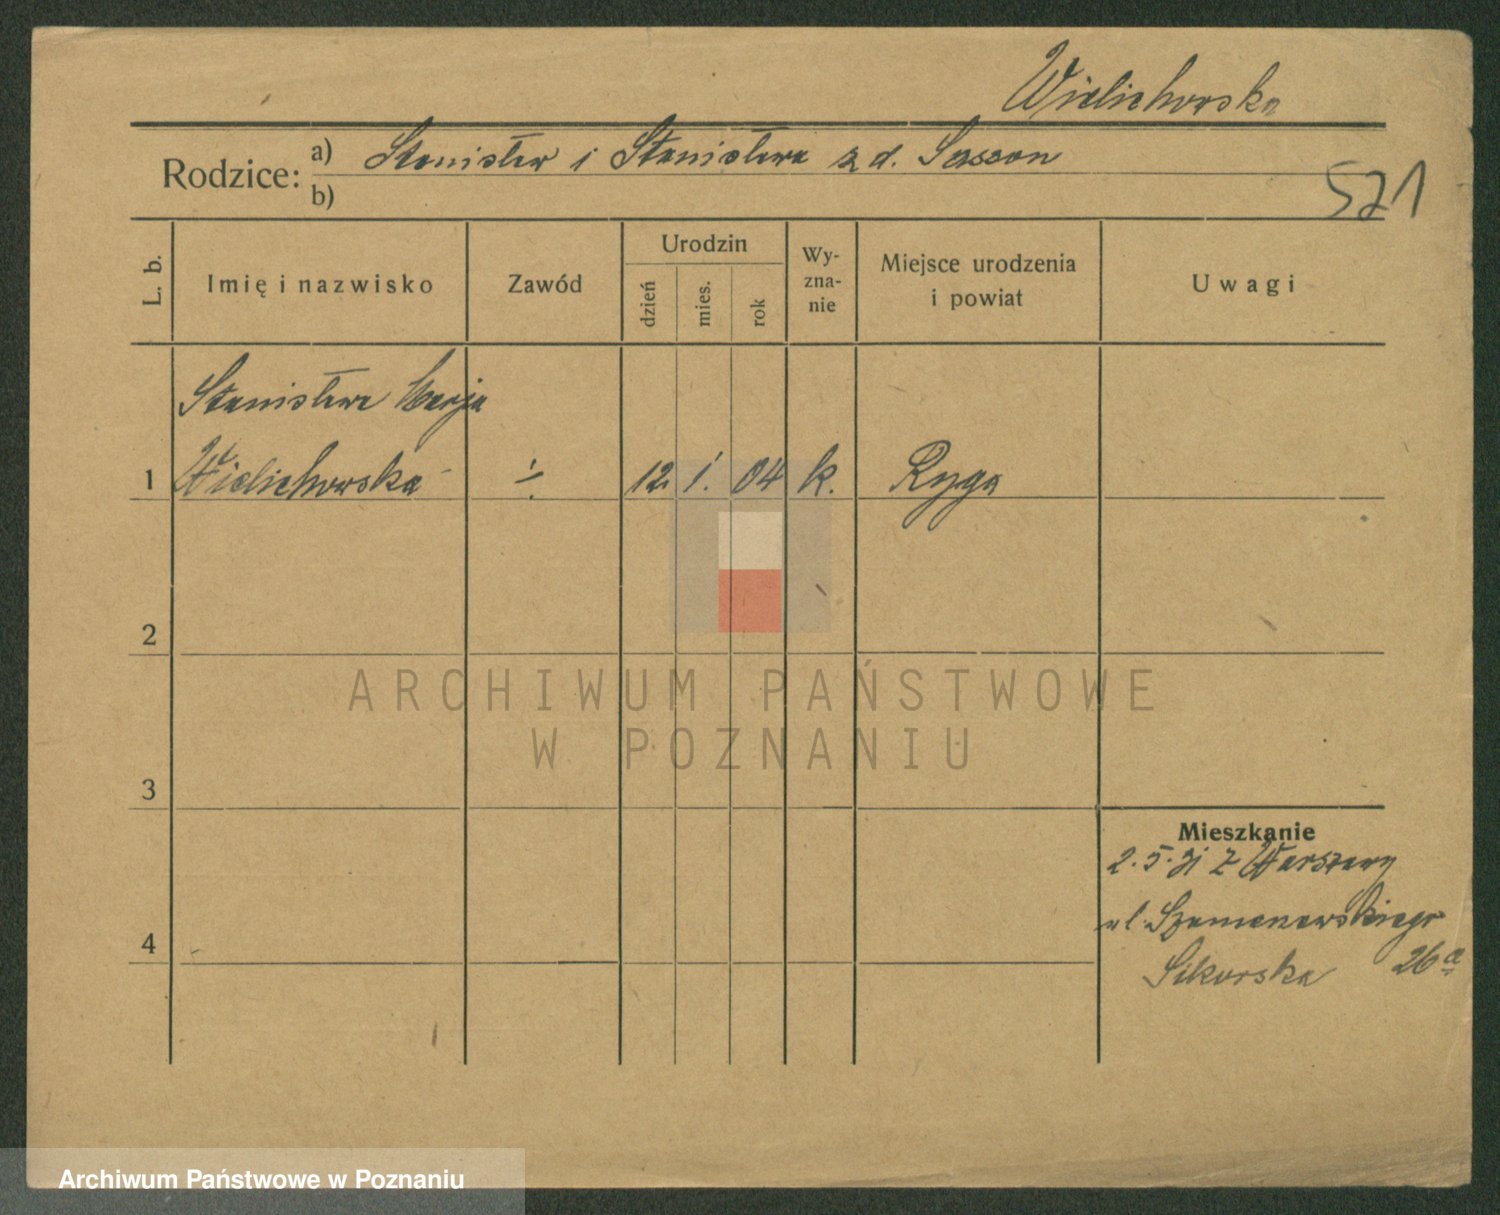 Wielichorska
Rodzice: a) Stanisław i Stanisława z d. Sasson
b)
521
L. b.
Imię i nazwisko
Zawód
Urodzin
dzień
mies.
rok
Wy-
zna-
nie
Miejsce urodzenia
i powiat
Uwagi
Stanisława Marja
1 Wielichorska ÷ 12. 1. 04 k. Ryga
2
3
4
Mieszkanie
2.5.31 z Warszawy
ul. Szamarzewskiego
26a
Sikorska
ARCHIWUM PAŃSTWOWE
W POZNANIU
Archiwum Państwowe w Poznaniu